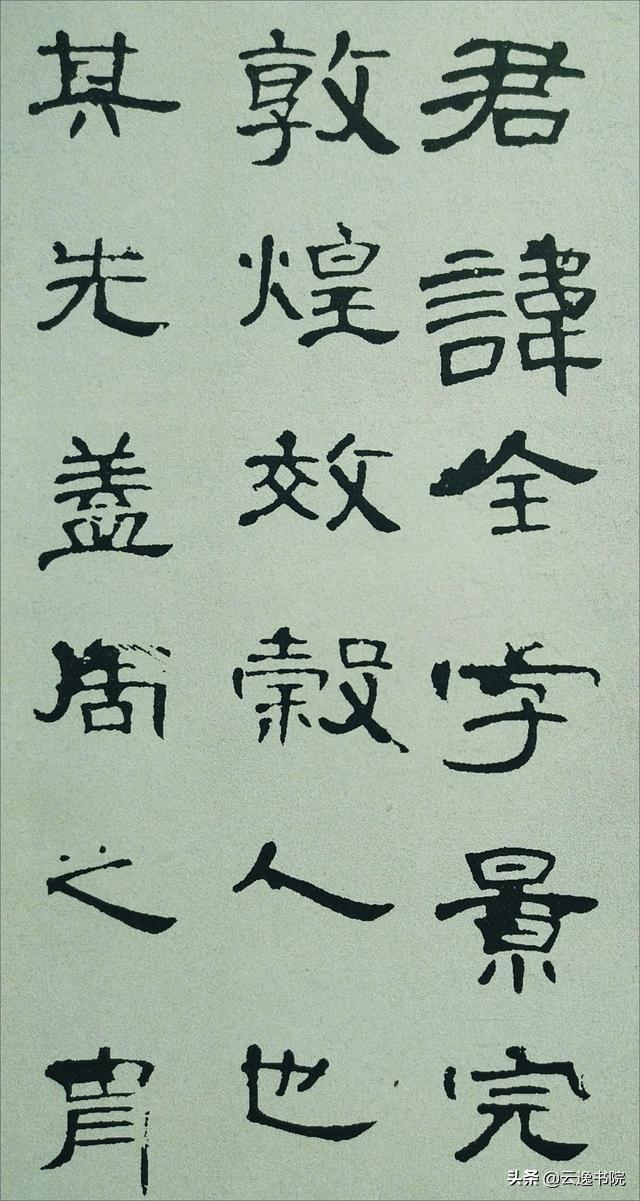 君諱全字景完
敦煌效穀人也
其先蓋周之胄
头条 @云逸书院